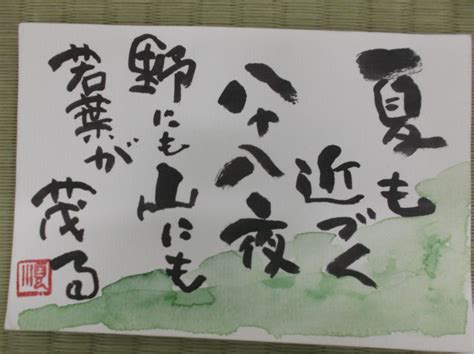 夏も
近づく
八十八夜
野にも山にも
若葉が
茂る